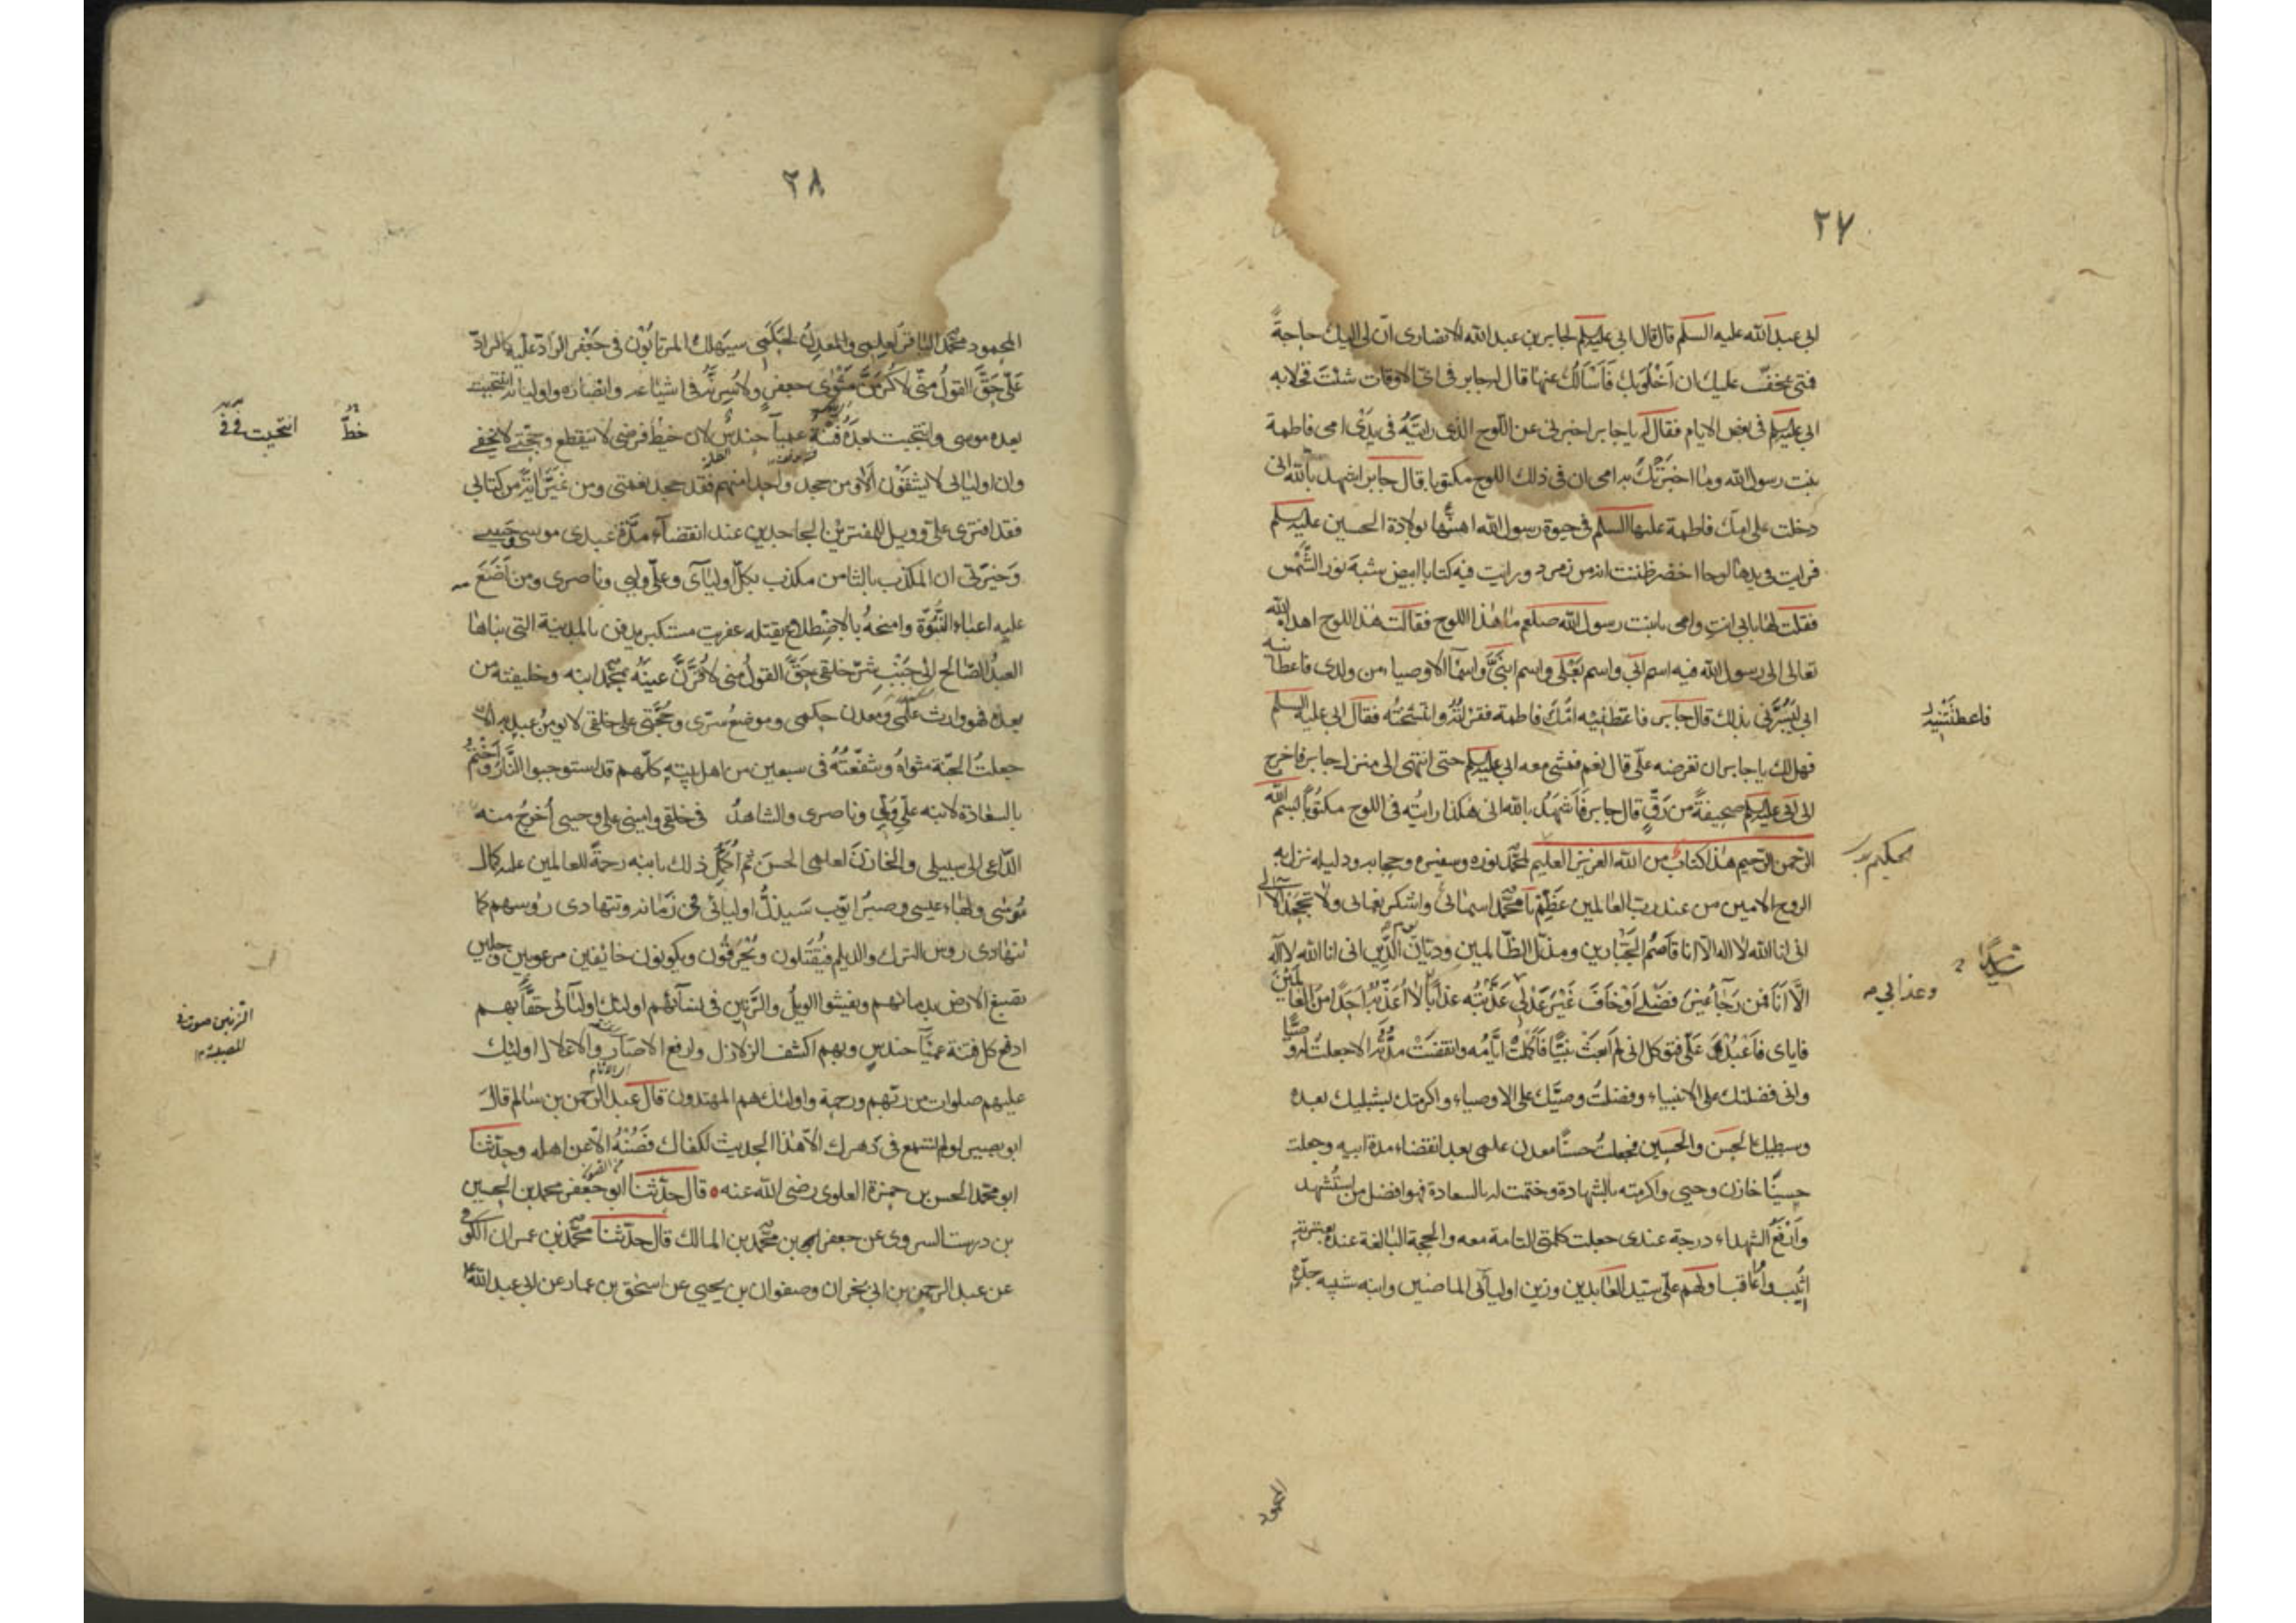 ٢٧
ابي عبد الله عليه السلم قال قال ابي عليه السلم لجابر بن عبد الله الانصارى ان لى اليك حاجةً
فمتى يخفّ عليك ان اَخْلُوَ بك فَاَسْاَلُكَ عنها قال له جابر فى اىّ الاوقات شئتَ فخلا به
ابي عليه السلم فى بعض الايام فقال له يا جابر اخبرنى عن اللّوح الذى رايتَهُ فى يَدَىْ امى فاطمة
بنت رسول الله وما اخبَرَتْكَ به امى ان فى ذلك اللوح مكتوبا قال جابر اشهد بالله انى
دخلت على امك فاطمة عليها السلم فى حيوة رسول الله اهنّئها بولادة الحسين عليه السلم
فرايت فى يدها لوحا اخضر ظننت انه من زمرد ورايت فيه كتابا ابيض شبهَ نور الشَّمْس
فقلت لها بابى انتِ وامى يا بنت رسول الله صلعم ما هذا اللوح فقالت هذا اللوح اهداه الله
تعالى الى رسول الله فيه اسم ابى واسم بَعْلى واسم ابنَىَّ واسمآ الاوصياء من ولدى فاعطانيه
ابى ليَسُرَّنى بذلك قال جابر فاعطَتْنِيه امّك فاطمة فقرأتُه وانتسختُه فقال ابى عليه السلم
فهل لك يا جابر ان تعرضه علىّ قال نعم فمشى معه ابى عليه السلم حتى انتهى الى منزل جابر فاخرج
الى ابى عليه السلم صحيفةً من رَقٍّ قال جابر فَاَشْهَدُ بالله انى هكذا رايتُه فى اللوح مكتوبًا بسم الله
الرحمن الرحيم هذا كتابٌ من الله العزيز العليم لمحمّد نوره وسفيره وحجابه ودليله نزل به
الروح الامين من عند رب العالمين عَظِّمْ يا محمّد اسمائى واشكر نعمائى ولا تجحَدْ آلائى
انى انا الله لا اله الا انا قاصِمُ الجبّارين ومذلّ الظّالمين وديّان الدّين انى انا الله لا اله
الّا اَنَا فمن رَجآ غيرَ فضْلى اَوْ خافَ غَيْرَ عَدْلى عَذّبْتُه عذابًا لا اُعَذّبُه احَدًا من العالمين
فاياى فَاعْبُدْ وَ عَلىّ فتوكل انى لم اَبعَثْ نبيًّا فاُكْمِلَتْ ايّامُه وانقضَتْ مدّتُه الا جعلتُ له وصيًّا
وانى فضلتك على الانبياء وفضلتُ وصيَّك على الاوصياء واكرمتك بشبليك بعده
وسبطيك الحسَن والحسَين فجعلتُ حسنًا معدن علمى بعد انقضاء مدة ابيه وجعلت
حسينًا خازن وحيى واكرمته بالشهادة وختمت له بالسعادة فهو افضل من استُشهد
وَاَرْفَعُ الشهداء درجة عندى جعلت كلمتى التامة معه والحجة البالغة عنده بعترته
اُثيب واُعاقب اولهم علىّ سيّد العابدين وزين اوليائى الماضين وابنه شبيه جدّه
فاعطَتْنِيه
وعذابي
المحمود
٢٨
المحمود محمّد الباقر لعلمى والمعدِنُ لحكمَتى سيَهلك المرتابُون فى جَعْفر الرادّ عليه كالرادّ
عَلَىَّ حَقّ القولُ منّى لاُكْرِمَنَّ مَثْوى جعفر ولاَسُرّنّه فى اشياعه وانصاره واوليائه انتجبت
بعده موسى وانتجبت بعدَه فتنة عمياء حندس لان خيط فرضى لا ينقطع وحجّتى لا تخفى
وان اوليائى لا يشقَوْن اَلا ومن جحد واحدا منهم فقد جحد نعمتى ومن غَيَّر ايَةً من كتابى
فقد افترى علىّ وويل للمفترين الجاحدين عند انقضآء مدّة عبدى موسى وحبيبى
وَخيرَتى ان المكذب بالثامن مكذب بكلّ اوليآئ وعلىّ وليى وناصرى ومن اَضَعُ
عليه اعباء النّبُوّة وامنحهُ بالاضْطلاع يقتله عفريت مستكبر يدفن بالمدينة التى بناها
العبدُ الصّالح الى جَنْبِ شرّ خلقى حَقّ القولُ منى لاُقِرَّنَّ عينَهُ بمحمّد ابنه وخليفته من
بعده فهو وارث علمى ومعدن حكمى وموضعُ سرّى وحُجّتى على خلقى لا يومنُ عبد به الا
جعلتُ الجنّة مثواهُ وشفّعتُهُ فى سبعين من اهل بيته كلّهم قد استوجبوا النّار وَاَخْتِمُ
بالسعادة لابنه علىّ وَليّى وناصرى والشاهدُ فى خلقى وامينى على وحيى اُخرجُ منه
الدّاعى الى سبيلى والخازنَ لعلمى الحسَن ثم اُكْمِلُ ذلك بابنه رحمةً للعالمين عليه كمال
مُوسى وبهاء عيسى وصبرُ ايّوب سَيذلُّ اوليائى فى زَمانه وتتهادى رؤسهم كما
تتهادى رؤس الترك والديلم فيُقتَلون ويُحْرَقُون ويكونون خائفين مرعوبين وجلين
تصبغ الارض بدمائهم ويفشوا الويلُ والرَّنين فى نسآئهم اولئك اوليآئى حقًّا بهم
ادفع كل فتنة عميآ حندسٍ وبهم اكشف الزلازل وارفع الاصار والاغلال اولئك
عليهم صلوات من ربّهم ورحمة واولئك هم المهتدون قال عبد الرحمن بن سالم قال
ابو بصير لو لم تسمع فى دهرك الّا هذا الحديث لكفاك فَصُنْهُ الّا عن اهله وحدّثنا
ابو محمّد الحسن بن حمزة العلوى رضى الله عنه قال حدّثنا ابو جعفر محمد بن الحسين
بن درست السروى عن جعفر بن محمّد بن المالك قال حدّثنا محمّد بن عمران الكوفى
عن عبد الرحمن بن ابى نجران وصفوان بن يحيى عن اسحق بن عمار عن ابى عبد الله
انتجبت
الرّنين صوت
المصيبة